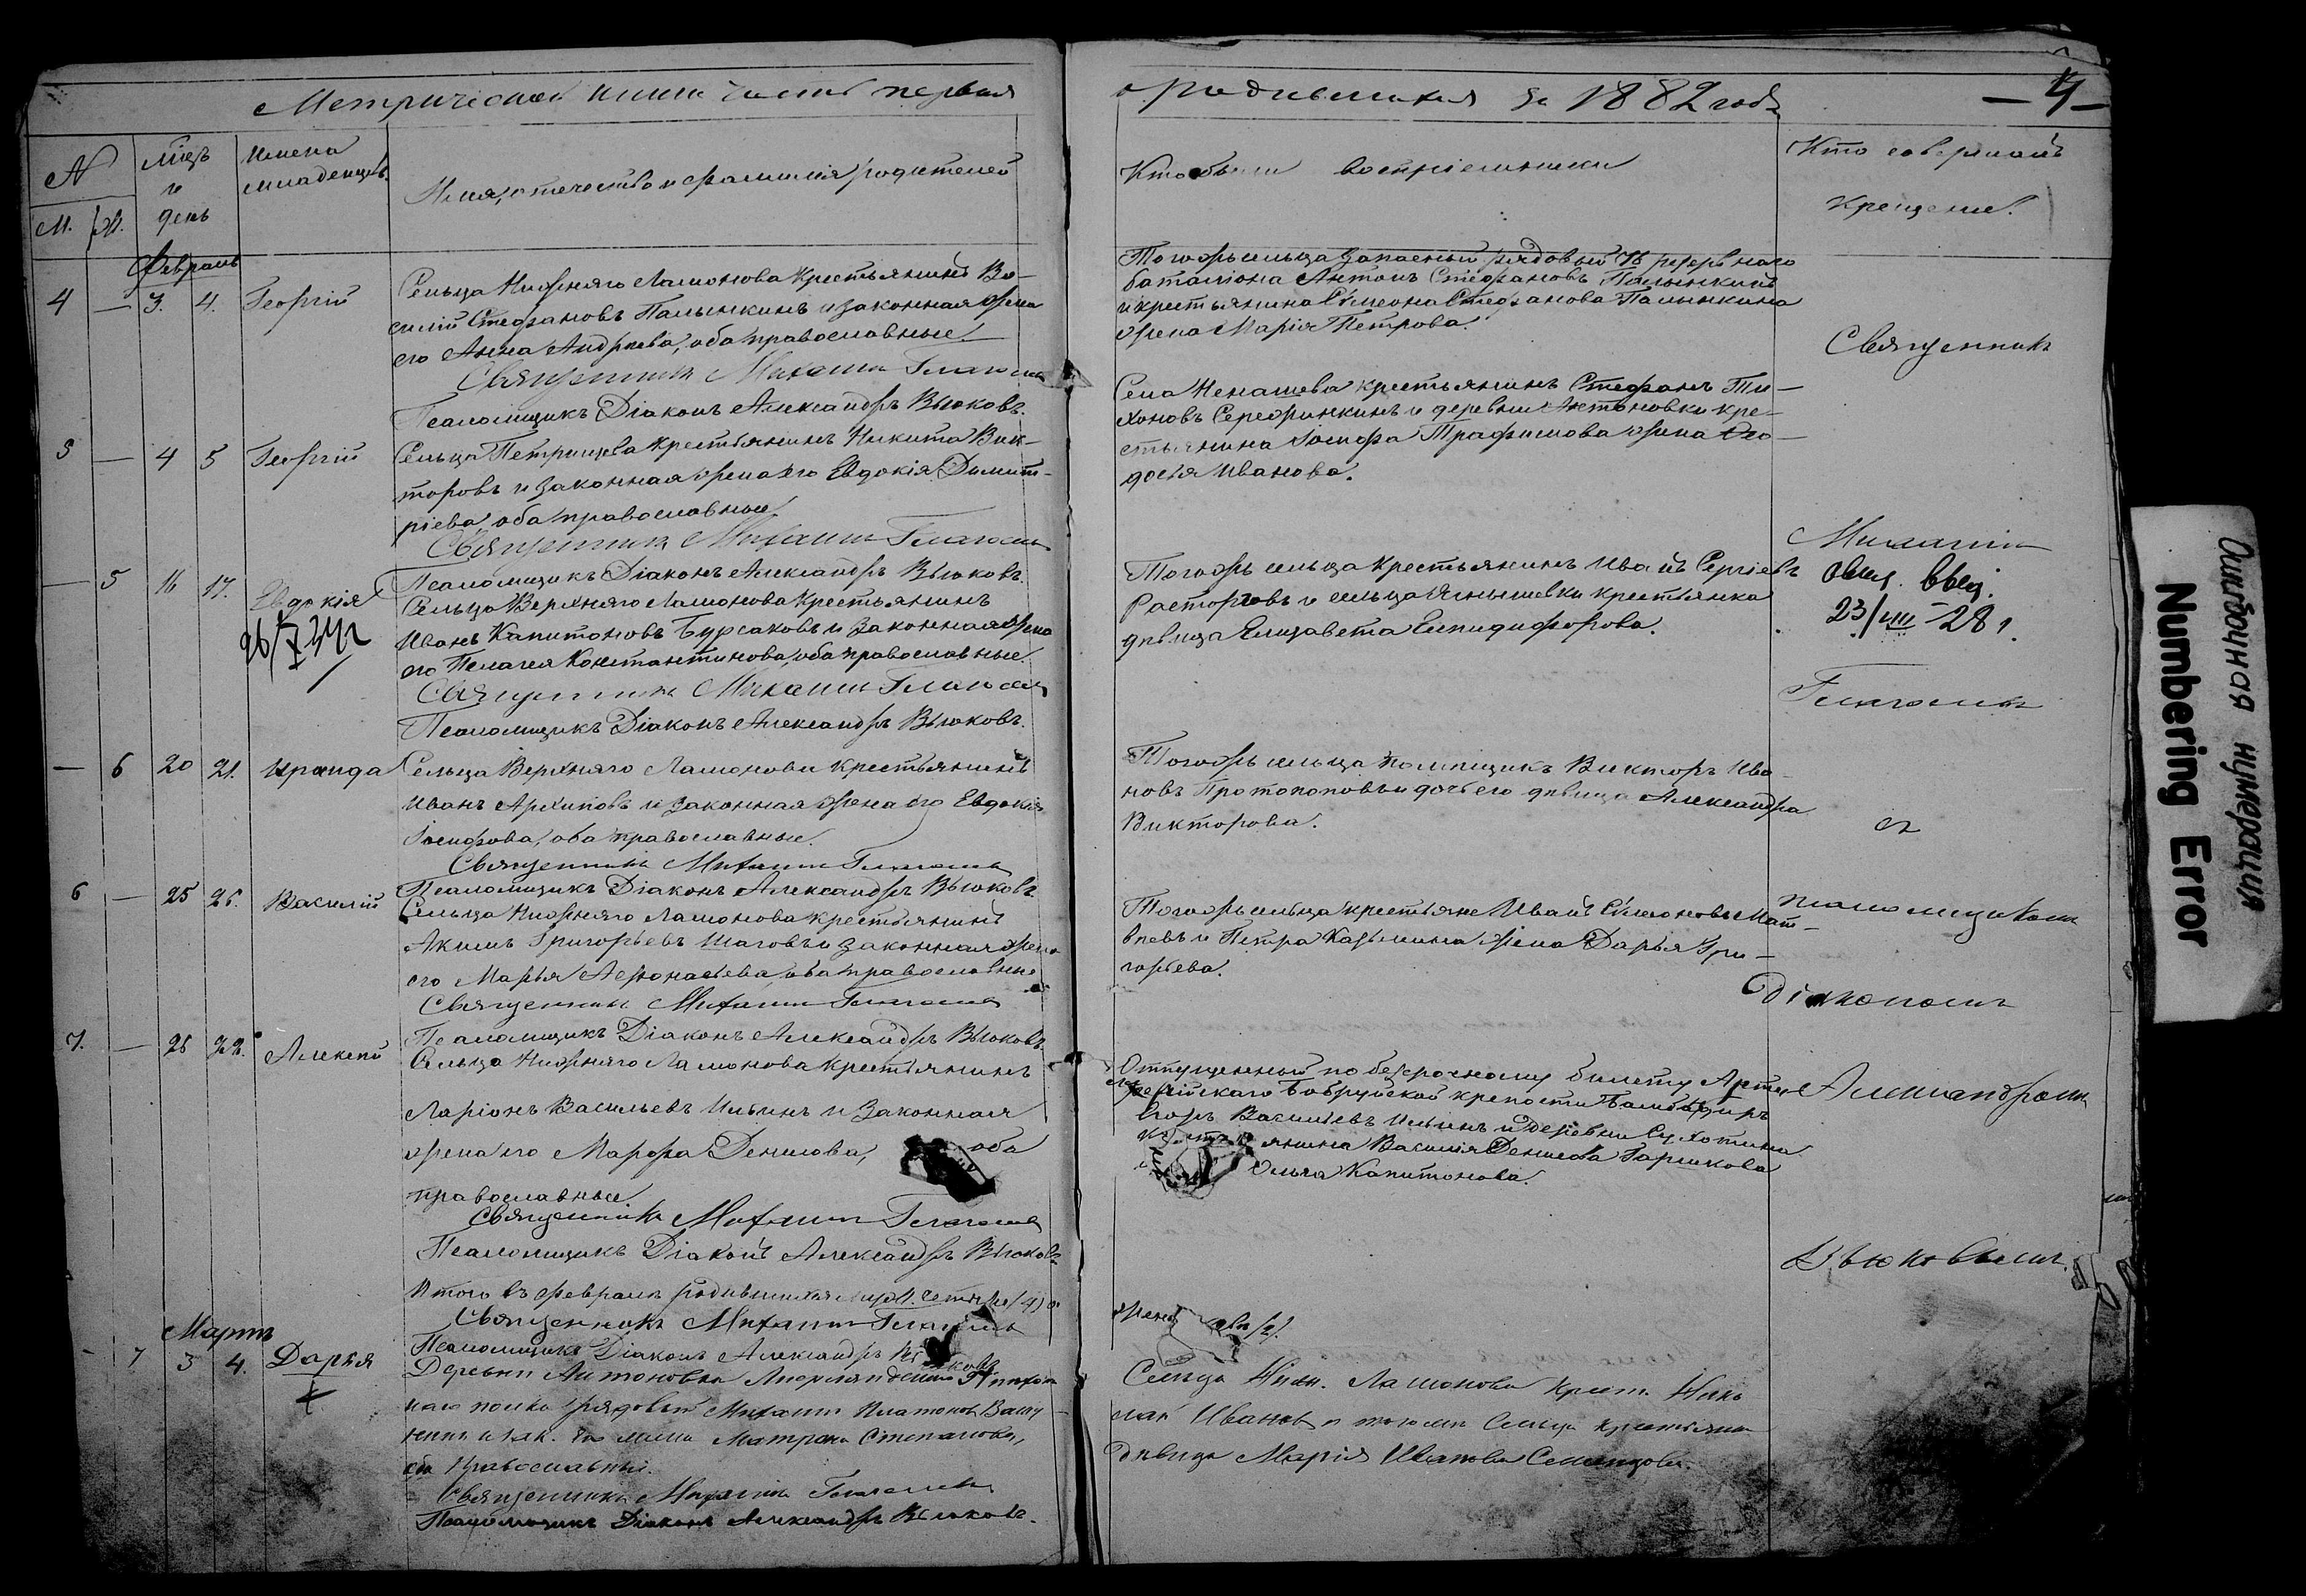 Метрической книги часть первая
о родившихся за 1882 годъ
— 4 —
N
М. Ж.
мѣцъ
и
день
Имена
младенцевъ.
Имя, отечество и фамилія родителей
Кто были воспріемники
Кто совершалъ
крещеніе.
Февраль
4 — 3. 4. Георгій
Сельца Нижняго Ламонова крестьянинъ Ва-
силій Стефановъ Палынкинъ и законная жена
его Анна Андреева, оба православные.
Священникъ Михаилъ
Псаломщикъ Діаконъ Александръ Вьюковъ.
Тогожъ сельца запасный рядовый резервнаго
баталіона Антонъ Стефановъ Палынкинъ
и крестьянина Сѵмеона Стефанова Палынкина
жена Марія Петрова.
Священникъ
5 — 4 5 Георгій
Сельца Петрищева крестьянинъ Никита Вик-
торовъ и законная жена его Евдокія Димит-
ріева, оба православные
Священникъ Михаилъ
Псаломщикъ Діаконъ Александръ Вьюковъ.
Села Ненашева крестьянинъ Стефанъ Ти-
хоновъ Сережинкинъ и деревни Антоновки кре-
стьянина Іосифа Трафимова жена Ѳео-
досья Иванова.
Михаилъ
— 5 16 17. Евдокія
26/X
Сельца Верхняго Ламонова крестьянинъ
Иванъ Капитоновъ Бурсаковъ и законная жена
его Пелагея Константинова, оба православные.
Священникъ Михаилъ
Псаломщикъ Діаконъ Александръ Вьюковъ.
Тогожъ сельца крестьянинъ Иванъ Сергіевъ
Расторговъ и сельца крестьянка
дѣвица Елизавета Елпидифорова.
23/VIII-28 г.
— 6 20 21. Ираида
Сельца Верхняго Ламонова крестьянинъ
Иванъ Архиповъ и законная жена его Евдокія
Іосифова, оба православные.
Священникъ Михаилъ
Псаломщикъ Діаконъ Александръ Вьюковъ.
Тогожъ сельца помѣщикъ Викторъ Ива-
новъ Протопоповъ и дочь его дѣвица Александра
Викторова.
съ
6 — 25 26. Василій
Сельца Нижняго Ламонова крестьянинъ
Акимъ Григорьевъ Шаговъ и законная жена
его Марья Аѳонасьева, оба православные
Священникъ Михаилъ
Псаломщикъ Діаконъ Александръ Вьюковъ.
Тогожъ сельца крестьяне Иванъ Сѵмеоновъ Мат-
вѣевъ и Петра Казьмина жена Дарья Гри-
горьева.
псаломщикомъ
Діакономъ
7. — 26 Алексѣй
Сельца Нижняго Ламонова крестьянинъ
Ларіонъ Васильевъ Ильинъ и законная
жена его Марѳа Денисова, оба
православные
Священникъ Михаилъ
Псаломщикъ Діаконъ Александръ Вьюковъ
Отпущенный по безсрочному билету Арти-
Бобруйской крѣпости
Егоръ Васильевъ Ильинъ и деревни Сухотина
янина Василія Денисова Гаршкова
Ольга Капитонова.
Александромъ
Вьюковымъ.
Итого въ февралѣ родившихся муж. п. четыре (4) и
Священникъ Михаилъ
Псаломщикъ Діаконъ Александръ
женс два (2).
Мартъ
- 7 3 4. Дарья
Деревни Антоновки
наго полка рядовый Михаилъ Платоновъ
Матрона Степанова,
оба Православные.
Священникъ Михаилъ
Псаломщикъ Діаконъ Александръ Вьюковъ.
Сельца Ниж. Ламонова крест. Нико-
лай Ивановъ и тогожъ сельца крестьянка
дѣвица Марія Иванова
Ошибочная нумерация
Numbering Error